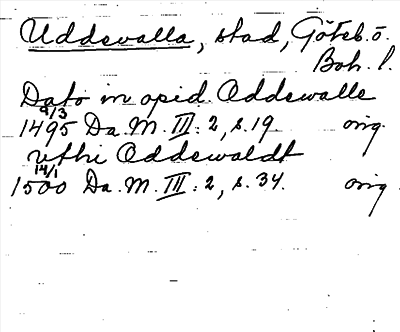 Uddevalla, stad, Göteb. o.
Boh. l.
Dato in opid Oddewalle
9/3
1495 Da. M. III: 2, s. 19. orig.
vthi Oddewaldt
14/1
1500 Da. M. III: 2, s. 34. orig.